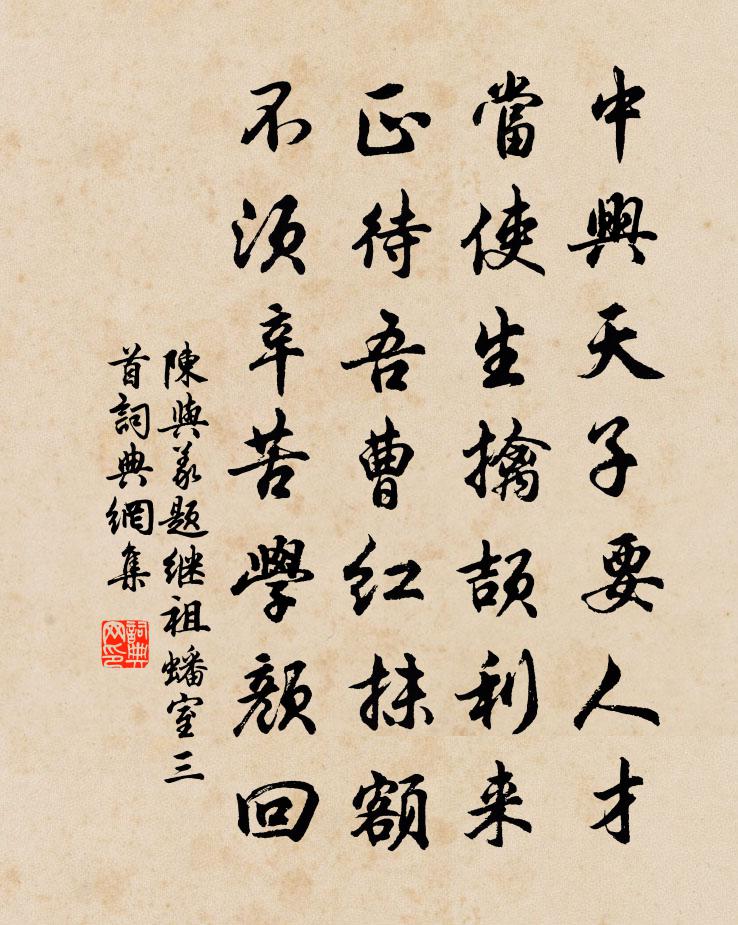 中興天子要人才
當使生擒頡利来
正待吾曹紅抹額
不須辛苦學顏回
陳與義題继祖蟠室三
首詞典網集
詞典
网印